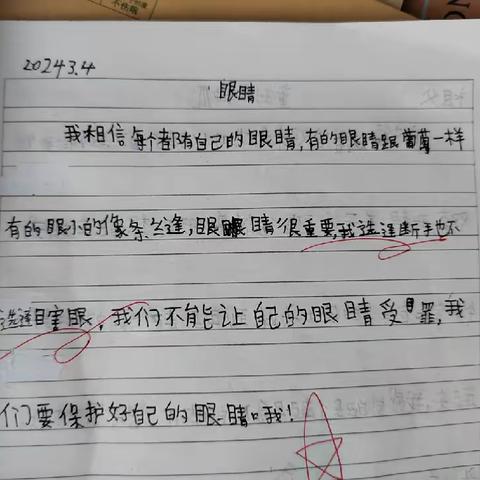 2024 3.4
眼睛
我相信每个都有自己的眼睛,有的眼睛跟葡萄一样
有的眼小的像条丝逢,眼睛很重要,我选逢断手也不
选逢目害眼,我们不能让自己的眼睛受罪,我
们要保护好自己的眼睛哦!